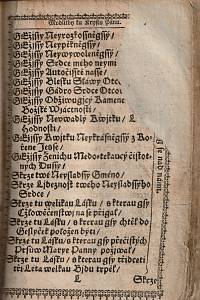 Modlitby ku Krystu Pánu.
GEžjssy Neyrozkossněgssý/
GEžjssy Neypěkněgssý/
GEžjssy Neywywoleněgssý/
GEžjssy Srdce mého neymi
GEžjssy Autočisstě nasse/
GEžjssy Blesku Sláwy Otc.
GEžjssy Gádro Srdce Otco.
GEžjssy Obžiwugjcý Kamene
Božské Wzáctnosti/
GEžjssy Newadlý Kwjtku/
Hodnosti/
GEžjssy Kwjtku Neykrásněgssý z Ko=
řene Jesse/
GEžjssy Ženichu Medo=tekaucý čistot=
ných Dussý/
Skrze twé Neysladssý Gméno/
Skrze Ljbeznost twého Neysladssýho
Srdce/
Skrze tu Lásku/ s kterau gsy
Człowěčenstwj na se přigal/
Skrze tu Lásku/ s kterau gsy chtěl do
Gesljček položen býti/
Skrze tu Lásku/ s kterau gsy přečistých
Prsůw Marye Panny požjwal/
Skrze tu welikau Lásku/ s kterau gsy třidceti
tři Leta welikau Bjdu trpěl/
L
Skrze
g se nad námi.